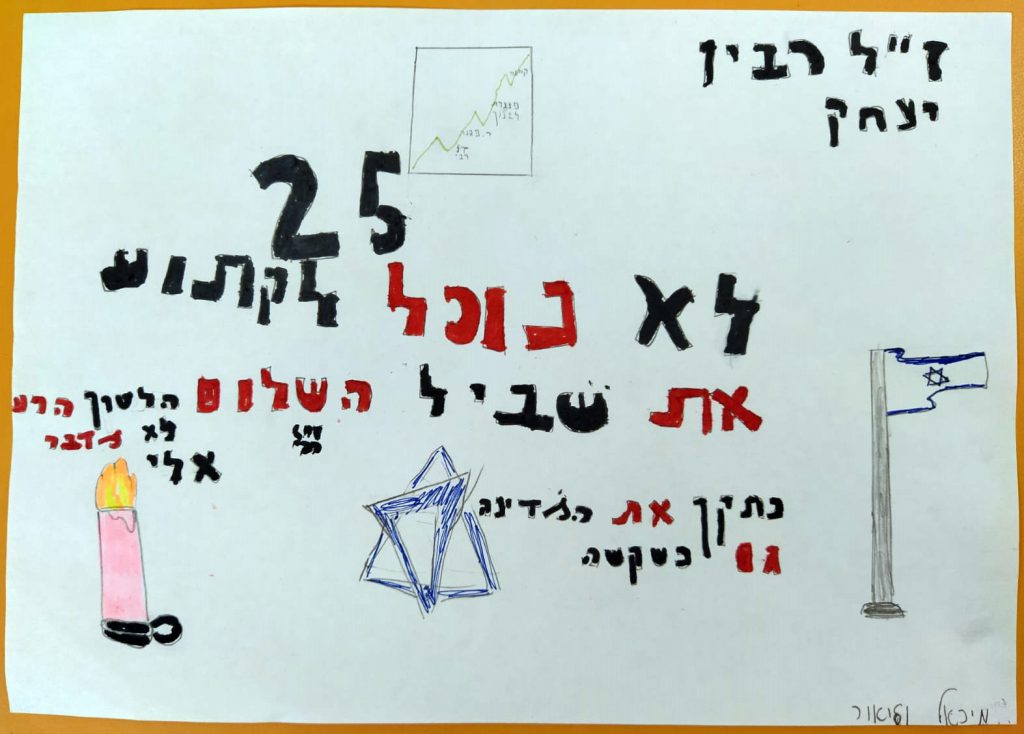 ז"ל רבין
יצחק
25
לא נוכל לקתוע
את שביל השלום
הלשון הרע
לא מדבר
אלי
נתקן את המדינה
גם כשקשה
מיכאל